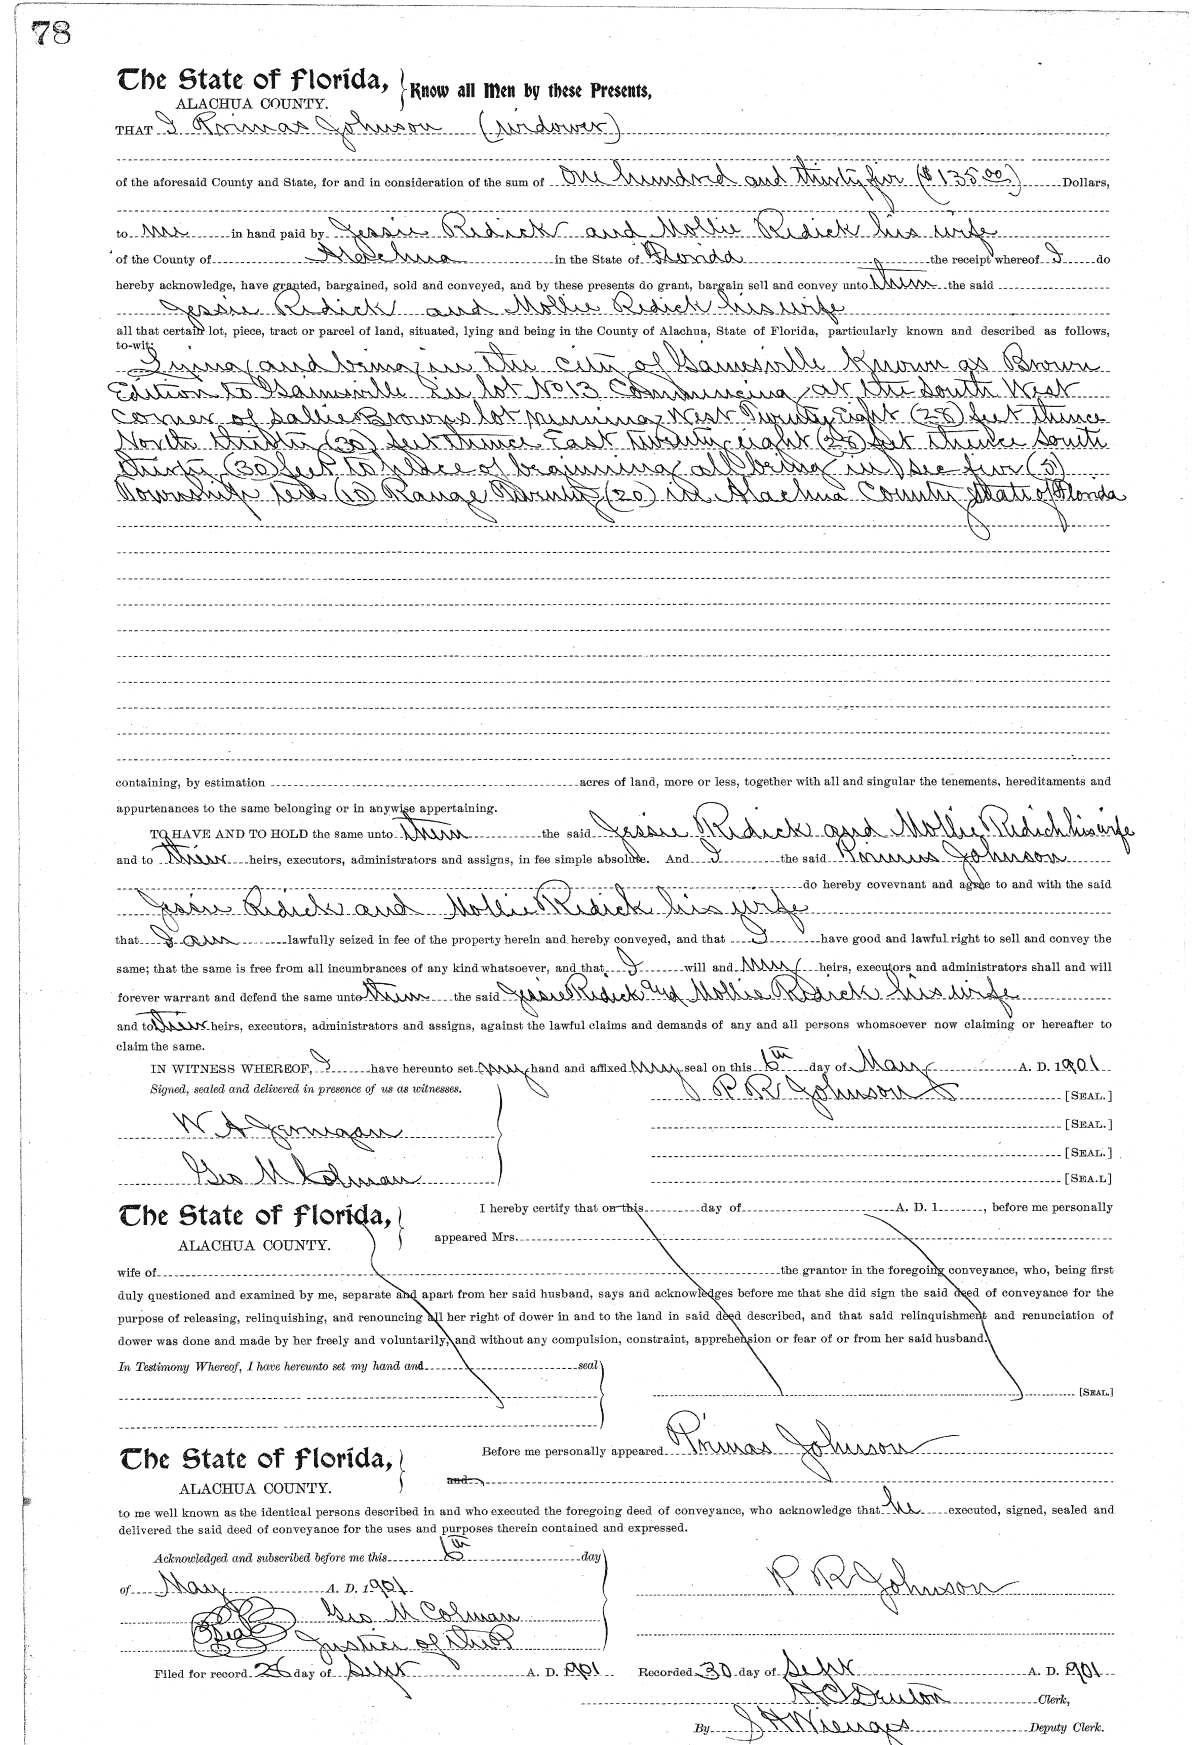 78
The State of Florida,
ALACHUA COUNTY.
Know all Men by these Presents,
THAT I Primas Johnson (widower)
of the aforesaid County and State, for and in consideration of the sum of One hundred and thirty five ($135.00) Dollars,
to me in hand paid by Jessie Redick and Mollie Redick his wife
of the County of Alachua in the State of Florida the receipt whereof I do
hereby acknowledge, have granted, bargained, sold and conveyed, and by these presents do grant, bargain sell and convey unto them the said
Jessie Redick and Mollie Redick his wife
all that certain lot, piece, tract or parcel of land, situated, lying and being in the County of Alachua, State of Florida, particularly known and described as follows,
to-wit:
Lying and being in the city of Gainesville Known as Brown
Edition to Gainsville in lot No 13 Commencing at the South West
corner of Sallie Browns lot running West Twenty Eight (28) feet thence
North thirty (30) feet thence East twenty eight (28) feet thence South
thirty (30) feet to place of beginning all being in Sec five (5)
Township ten (10) Range Twenty (20) in Alachua County State of Florida
containing, by estimation acres of land, more or less, together with all and singular the tenements, hereditaments and
appurtenances to the same belonging or in anywise appertaining.
TO HAVE AND TO HOLD the same unto them the said Jessie Redick and Mollie Redick his wife
and to their heirs, executors, administrators and assigns, in fee simple absolute. And I the said Primus Johnson
do hereby covevnant and agree to and with the said
Jessie Redick and Mollie Redick his wife
that I am lawfully seized in fee of the property herein and hereby conveyed, and that I have good and lawful right to sell and convey the
same; that the same is free from all incumbrances of any kind whatsoever, and that I will and my heirs, executors and administrators shall and will
forever warrant and defend the same unto them the said Jessie Redick and Mollie Redick his wife
and to their heirs, executors, administrators and assigns, against the lawful claims and demands of any and all persons whomsoever now claiming or hereafter to
claim the same.
IN WITNESS WHEREOF, I have hereunto set my hand and affixed my seal on this 6th day of May A. D. 1901
Signed, sealed and delivered in presence of us as witnesses.
P R Johnson [SEAL.]
W A Jernigan [SEAL.]
[SEAL.]
Geo M Colman [SEA.L]
The State of Florida,
ALACHUA COUNTY.
I hereby certify that on this day of A. D. 1 , before me personally
appeared Mrs.
wife of the grantor in the foregoing conveyance, who, being first
duly questioned and examined by me, separate and apart from her said husband, says and acknowledges before me that she did sign the said deed of conveyance for the
purpose of releasing, relinquishing, and renouncing all her right of dower in and to the land in said deed described, and that said relinquishment and renunciation of
dower was done and made by her freely and voluntarily, and without any compulsion, constraint, apprehension or fear of or from her said husband.
In Testimony Whereof, I have hereunto set my hand and seal
[SEAL.]
The State of Florida,
ALACHUA COUNTY.
Before me personally appeared Primas Johnson
and
to me well known as the identical persons described in and who executed the foregoing deed of conveyance, who acknowledge that he executed, signed, sealed and
delivered the said deed of conveyance for the uses and purposes therein contained and expressed.
Acknowledged and subscribed before me this 6th day
of May A. D. 1901
P R Johnson
Geo M Colman
Seal Justice of the P
Filed for record 26 day of Sept A. D. 1901 Recorded 30 day of Sept A. D. 1901
H C Denton Clerk,
By S H Wienges Deputy Clerk.